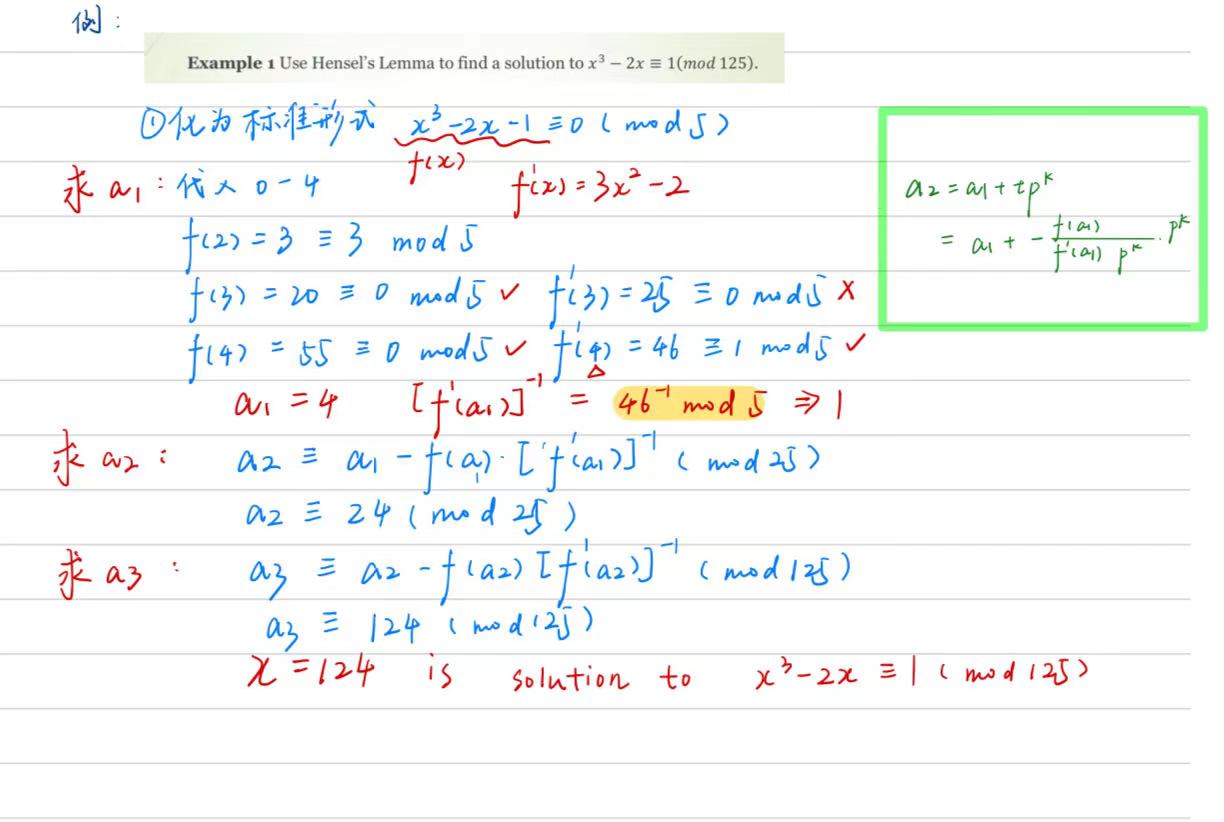 例:
Example 1 Use Hensel's Lemma to find a solution to x³ − 2x ≡ 1(mod 125).
①化为标准形式 x³-2x-1≡0 (mod 5)
f(x)
求 a₁: 代入 0-4 f'(x)=3x²-2
f(2)=3 ≡ 3 mod 5
f(3) = 20 ≡ 0 mod 5 ✓ f'(3)=25 ≡ 0 mod 5 ×
f(4) = 55 ≡ 0 mod 5 ✓ f'(4) = 46 ≡ 1 mod 5 ✓
a₁ = 4 [f'(a₁)]⁻¹ = 46⁻¹ mod 5 ⇒ 1
求 a₂: a₂ ≡ a₁ - f(a₁)·[f'(a₁)]⁻¹ (mod 25)
a₂ ≡ 24 (mod 25)
求 a₃: a₃ ≡ a₂ - f(a₂)[f'(a₂)]⁻¹ (mod 125)
a₃ ≡ 124 (mod 125)
x = 124 is solution to x³-2x ≡ 1 (mod 125)
a₂ = a₁ + tpᵏ
= a₁ + - f(a₁) / f'(a₁) pᵏ · pᵏ